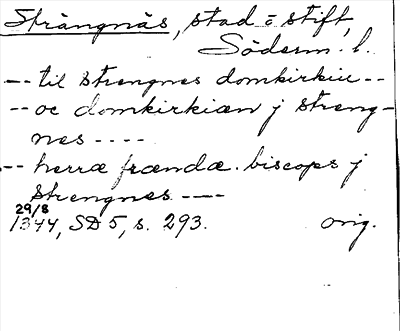 Strängnäs, stad o stift,
Söderm. l.
-- til strengnes domkirkiu --
-- oc domkirkiæn j streng-
nes ----
-- herræ frændæ. biscops j
strengnes ----
29/8
1344, SD 5, s. 293. orig.